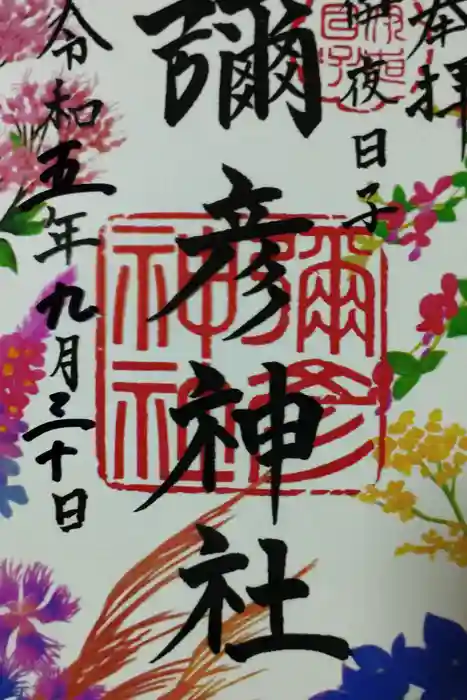 奉拝
伊夜日子
彌彦神社
令和五年九月三十日
彌彦
神社